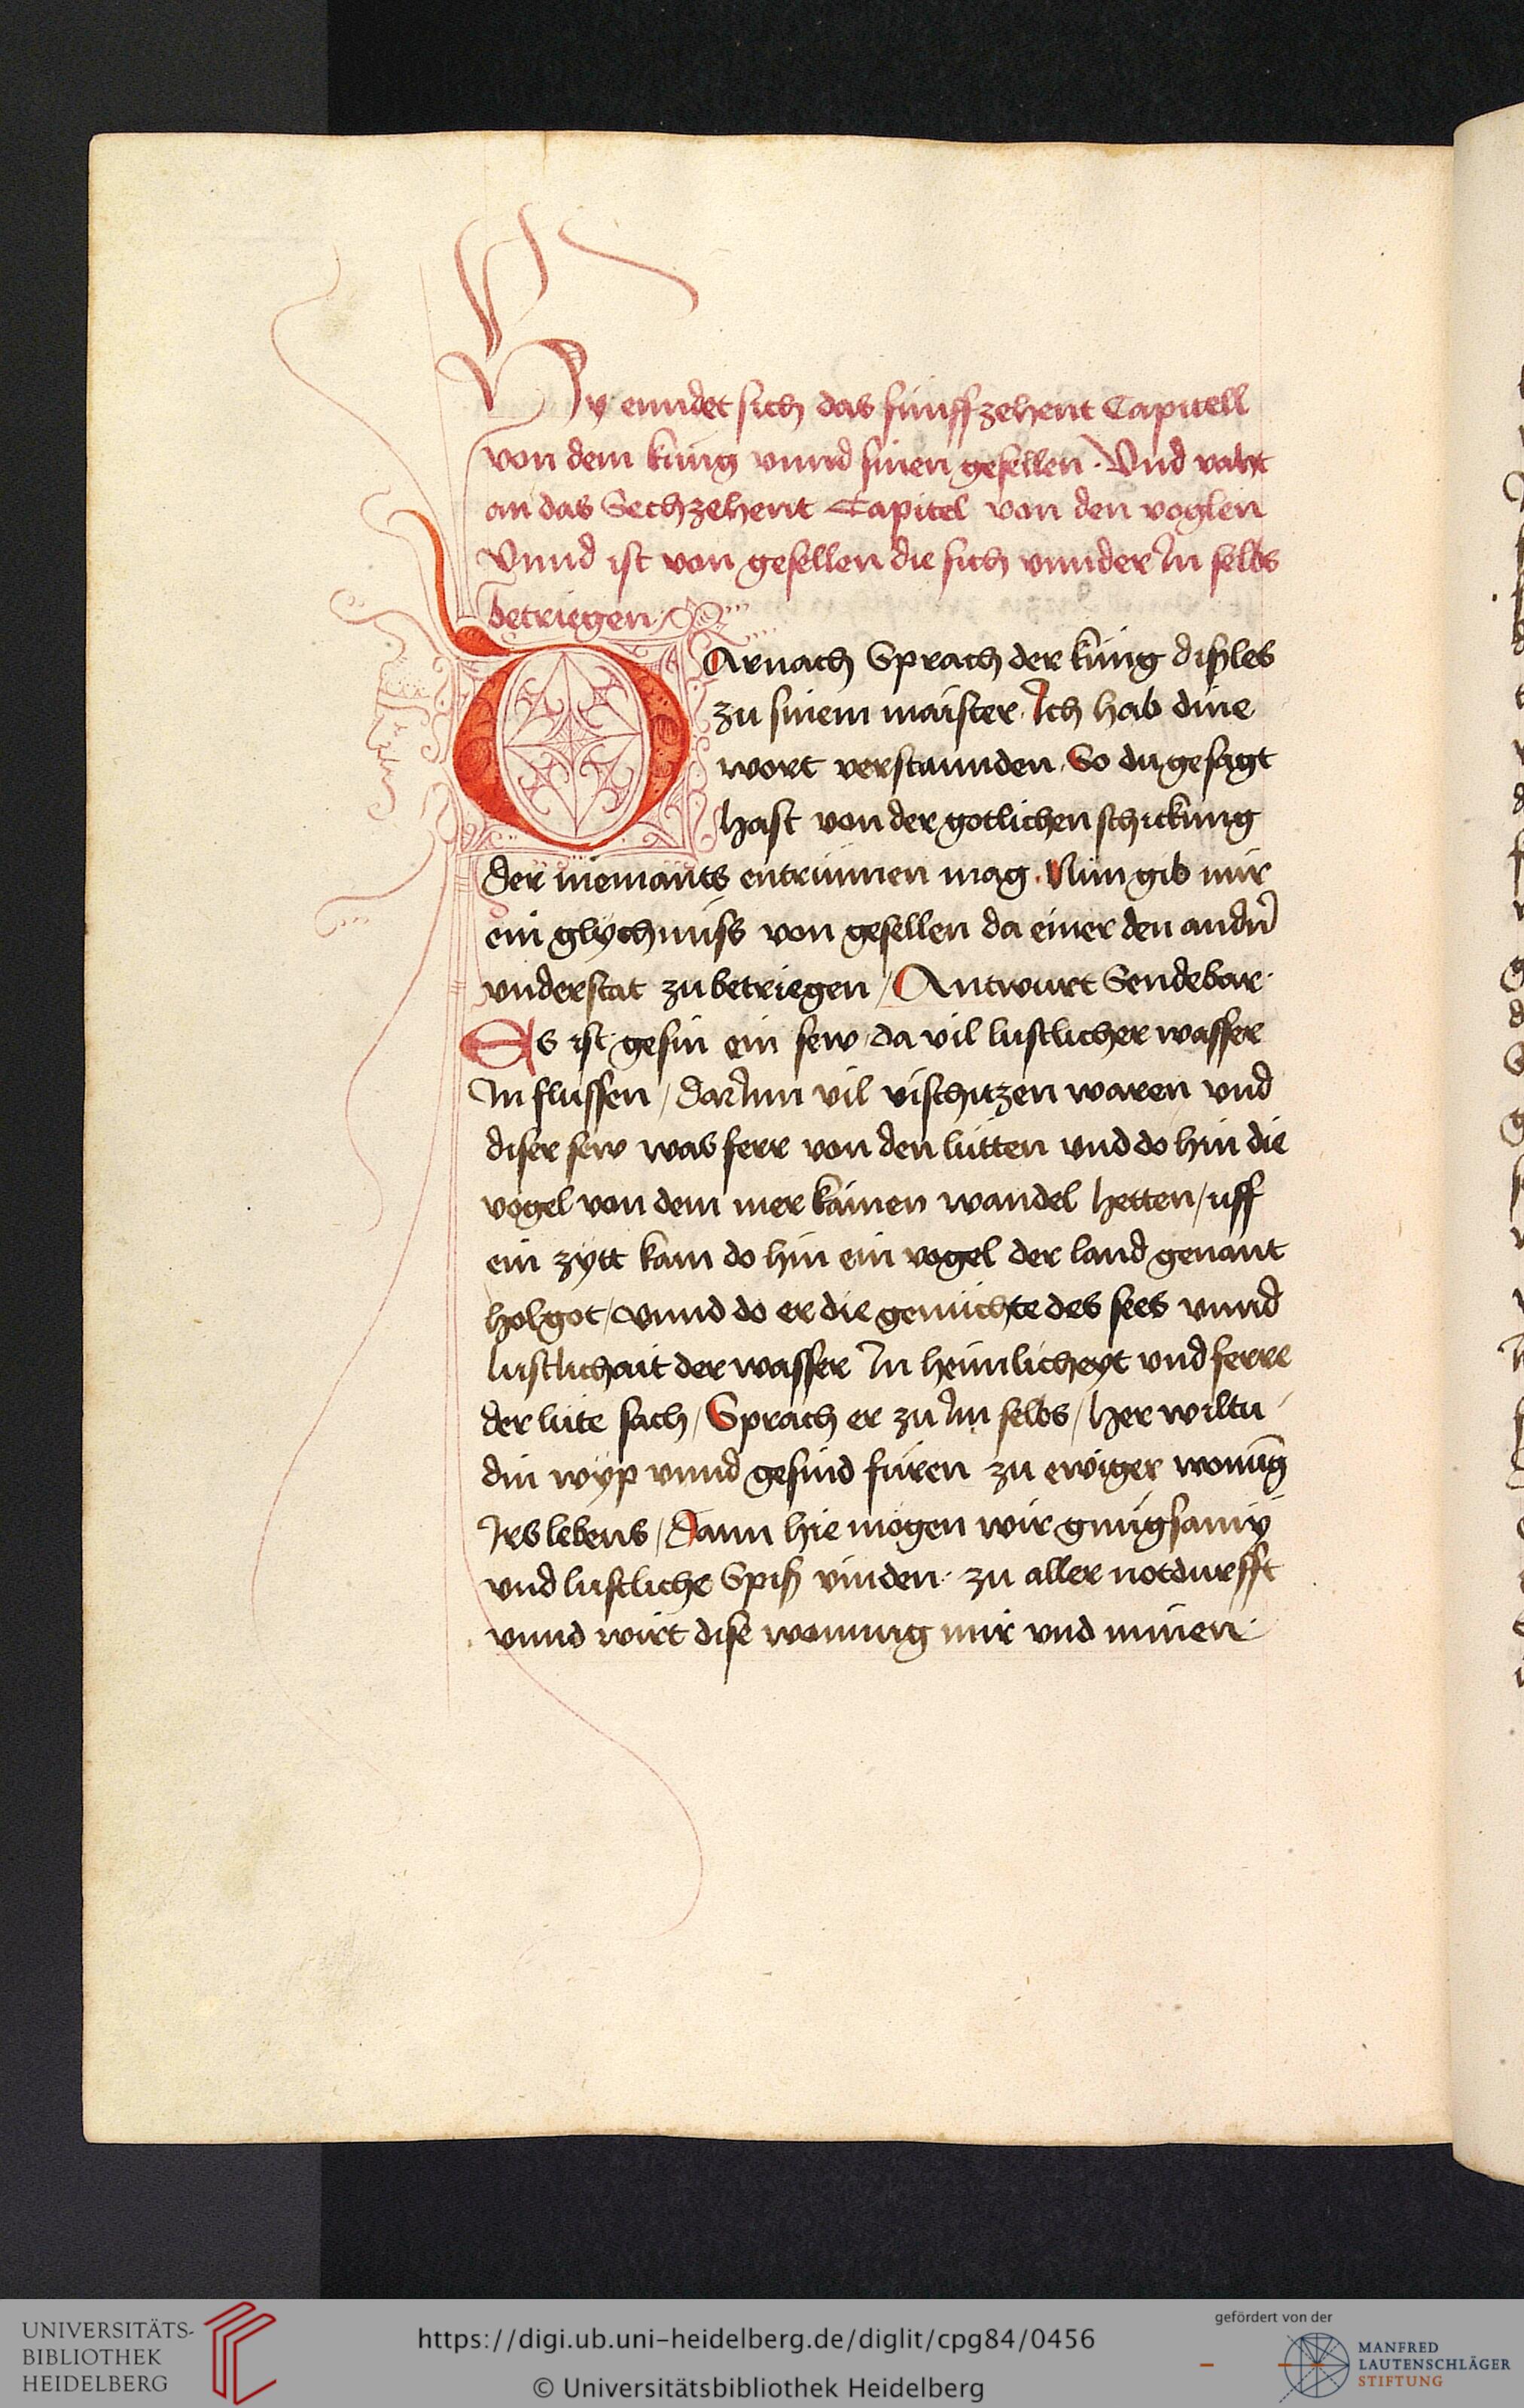 Hy enndet sich das funffzehent Capitell
von dem kung vnnd sinen gesellen · Vnd vaht
an das Sechzehent Capitel von den voglen
Vnnd ist von gesellen die sich vnnder In selbs
betriegen
DArnach Sprach der kung dißles
zu sinem maister · Ich hab dine
wort verstannden · So du gesagt
hast von der gotlichen schickung
der niemants entrinnen mag · Nun gib mir
ein glychnuss von gesellen da einer den andn̄
vnderstat zu betriegen / Antwurt Sendebar ·
Es ist gesin ein sew da vil lustlicher wasser
In flussen / dar Inn vil vischitzen waren vnd
diser sew was ferr von den lutten vnd do hin die
vogel von dem mer kainen wandel hetten / uff
ein zytt kam do hin ein vogel der land genant
holgot / vnnd do er die genuchte des sees vnnd
lustlichait der wasser In heimlicheyt vnd ferre
der lute sach / Sprach er zu Im selbs / her wiltu
din wyp vnnd gesind furen zu ewiger wonūg
Irs lebens / Dann hie mogen wir gnugsamy
vnd lustliche Spiß vinden · zu aller notdurfft
vnnd wirt dise wonung mir vnd minen ·
UNIVERSITÄTS-
BIBLIOTHEK
HEIDELBERG
https://digi.ub.uni-heidelberg.de/diglit/cpg84/0456
© Universitätsbibliothek Heidelberg
gefördert von der
MANFRED
LAUTENSCHLÄGER
STIFTUNG